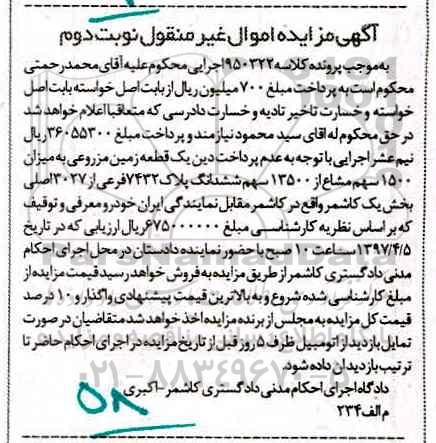 آگهی مزایده اموال غیر منقول نوبت دوم
به موجب پرونده کلاسه ۹۵۰۳۲۲ اجرایی محکوم علیه آقای محمد رحمتی
محکوم است به پرداخت مبلغ ۷۰۰ میلیون ریال از بابت اصل خواسته بابت اصل
خواسته و خسارت تاخیر تادیه و خسارت دادرسی که متعاقبا اعلام خواهد شد
در حق محکوم له اقای سید محمود نیازمند و پرداخت مبلغ ۳۶۰۵۵۳۰۰ ریال
نیم عشر اجرایی با توجه به عدم پرداخت دین یک قطعه زمین مزروعی به میزان
۱۵۰۰ سهم مشاع از ۱۳۵۰۰ سهم ششدانگ پلاک ۷۴۳۲ فرعی از ۳۰۲۷ اصلی
بخش یک کاشمر واقع در کاشمر مقابل نمایندگی ایران خودرو معرفی و توقیف
که بر اساس نظریه کارشناسی مبلغ ۶۷۵۰۰۰۰۰۰۰ ریال ارزیابی که در تاریخ
۱۳۹۷/۴/۵ ساعت ۱۰ صبح با حضور نماینده دادستان در محل اجرای احکام
مدنی دادگستری کاشمر از طریق مزایده به فروش خواهد رسید قیمت مزایده از
مبلغ کارشناسی شده شروع و به بالاترین قیمت پیشنهادی واگذار و ۱۰ درصد
قیمت کل مزایده به مجلس از برنده مزایده اخذ خواهد شد متقاضیان در صورت
تمایل بازدید از اتومبیل ظرف ۵ روز قبل از تاریخ مزایده در اجرای احکام حاضر تا
ترتیب بازدید ان داده شود.
دادگاه اجرای احکام مدنی دادگستری کاشمر - اکبری
م الف ۲۳۴
۵۸
۰۲۱-۸۸۳۴۹۶۷۰-۵